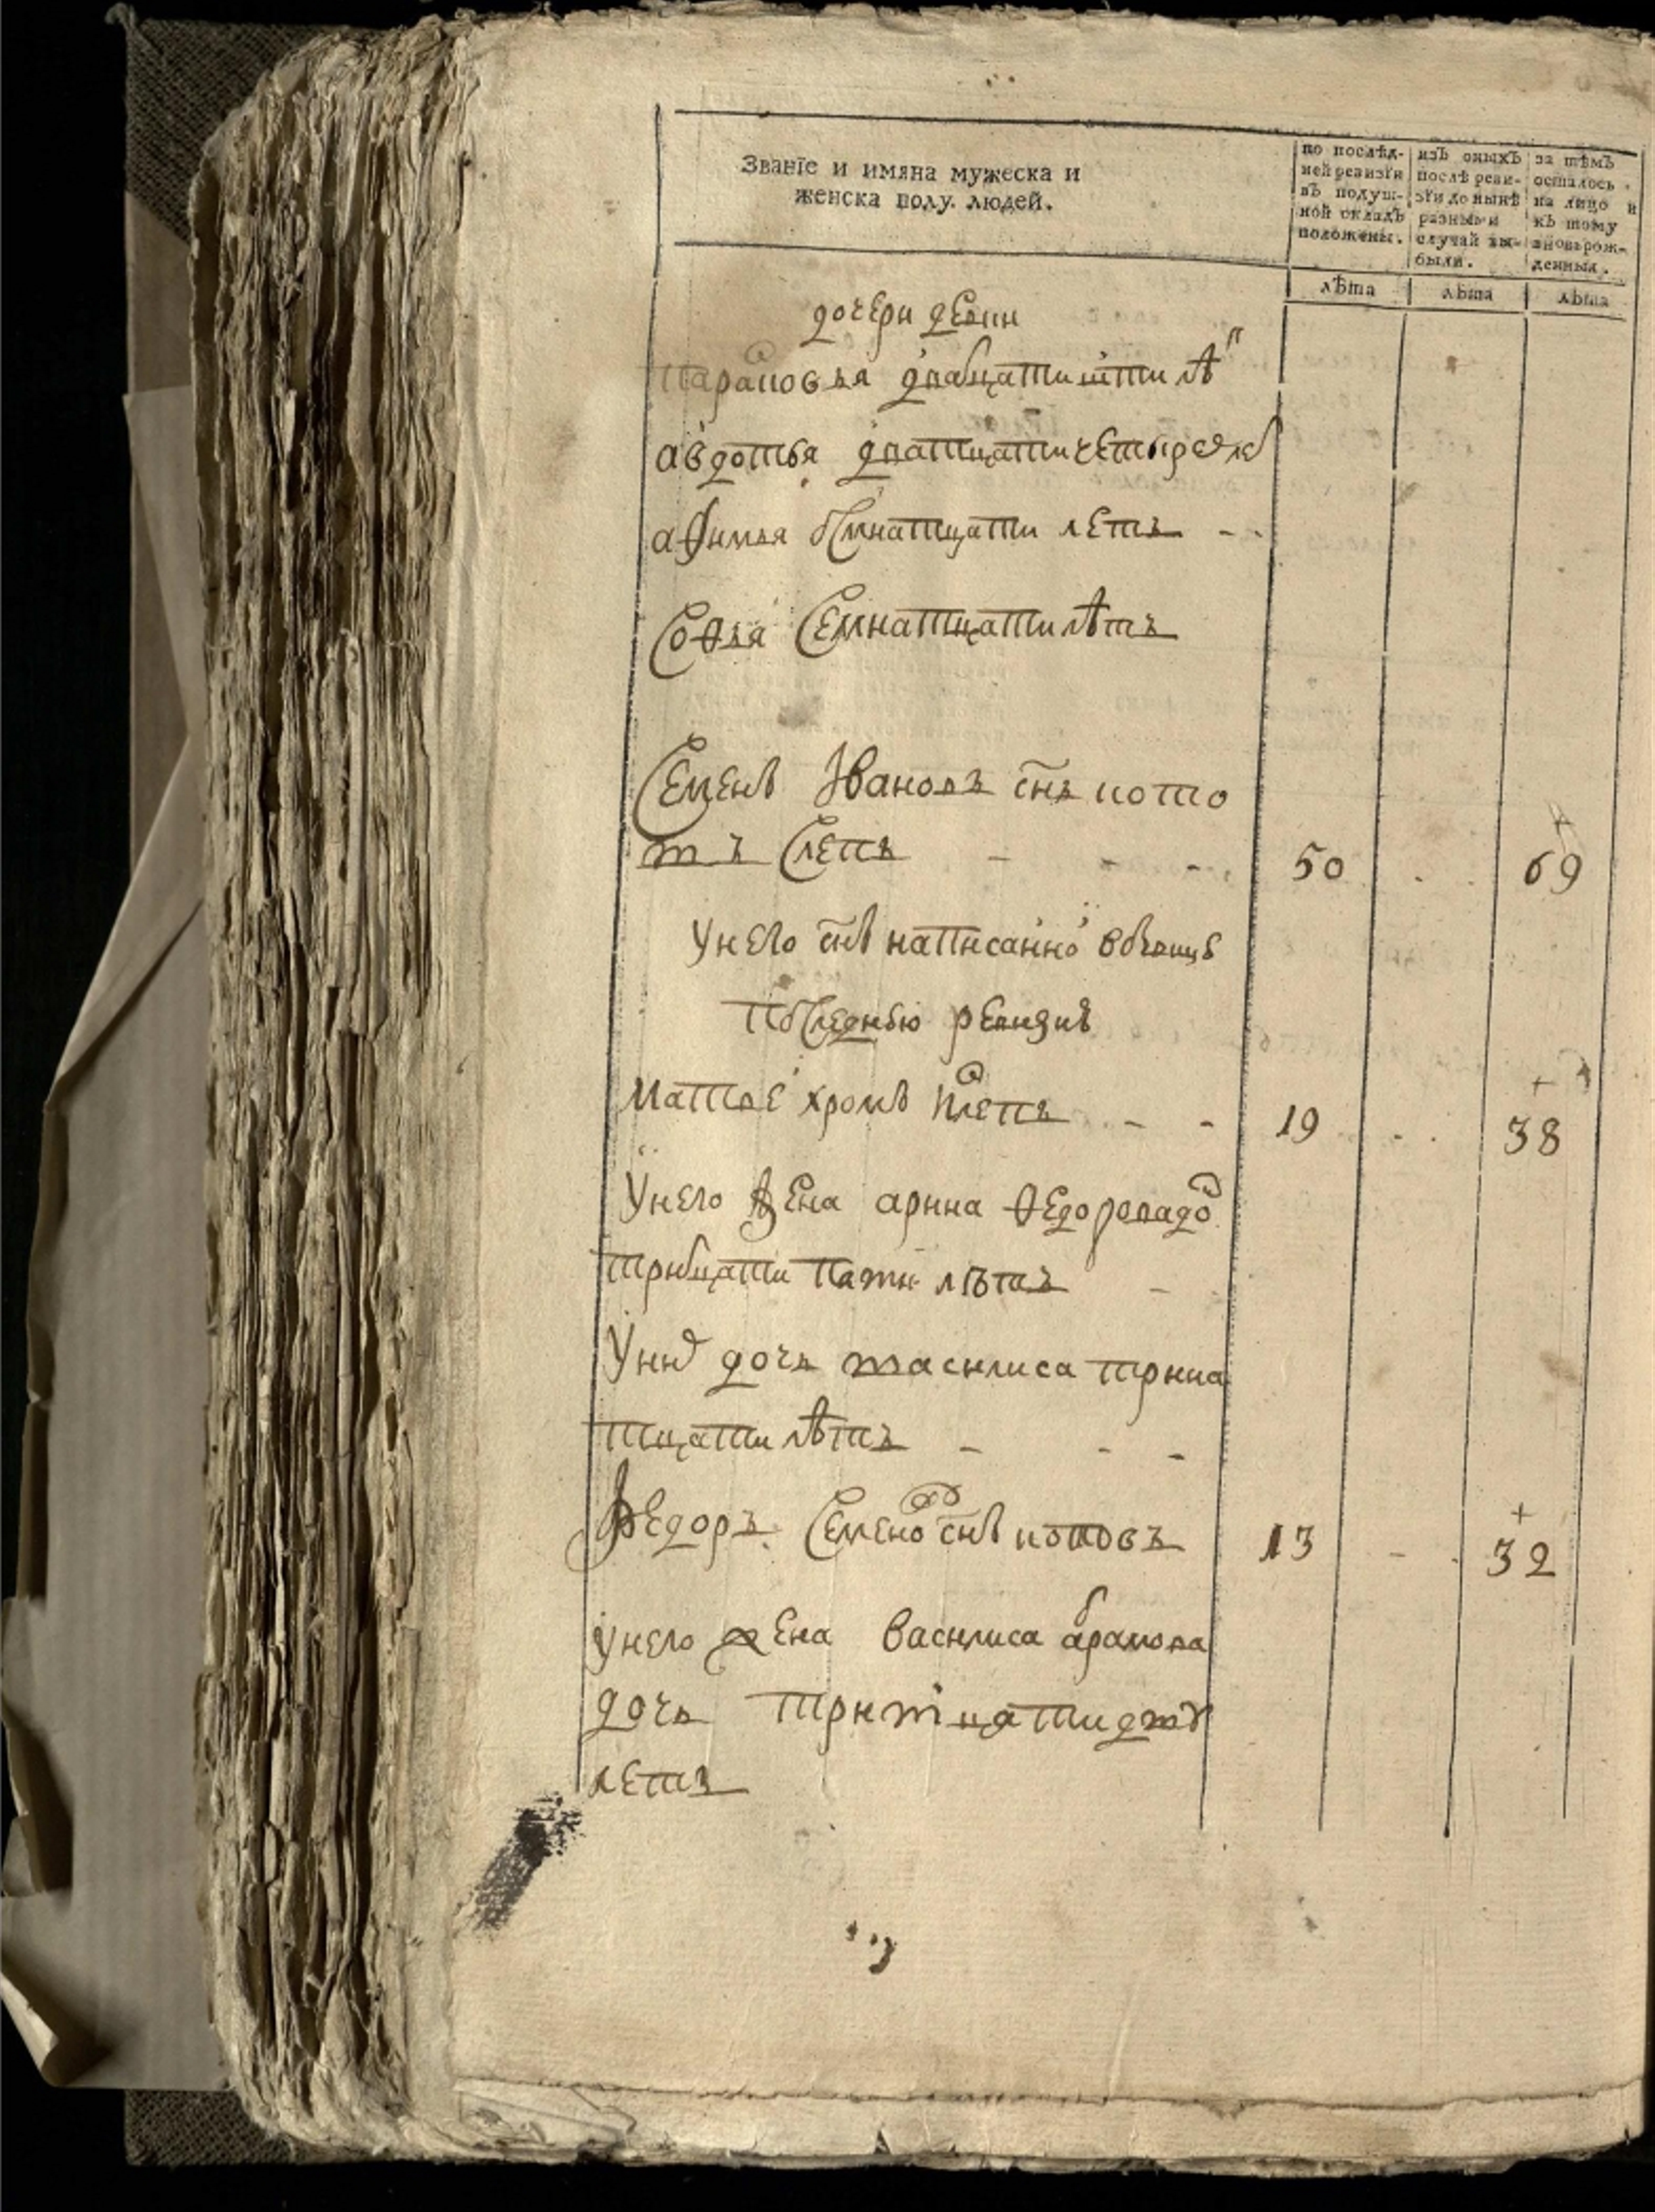 Званїе и имяна мужеска и
женска полу. людей.
по послѣд-
ней ревизїи
въ подуш-
ной окладъ
положены.
изъ оныхъ
послѣ реви-
зїи до нынѣ
разными
случаи вы-
были.
за тѣмъ
осталось
на лицо и
къ тому
вновьрож-
денныя.
лѣта лѣта лѣта
дочери девки
парасковья дватцати лѣ
авдотья дватцати четырех
афимья осмнатцати летъ
Софья Семнатцати лѣтъ
Семенъ Ивановъ снъ пото
въ слепъ 50 69
У него снъ написанной
последнею ревизию
Матвей хромъ 19 38
У него жена арина федорова до
тритцати пяти лѣтъ
У них дочь василиса трина
тцати лѣтъ
Федоръ Семенов снъ 13 32
у него жена василиса абрамова
дочь тритцати
летъ